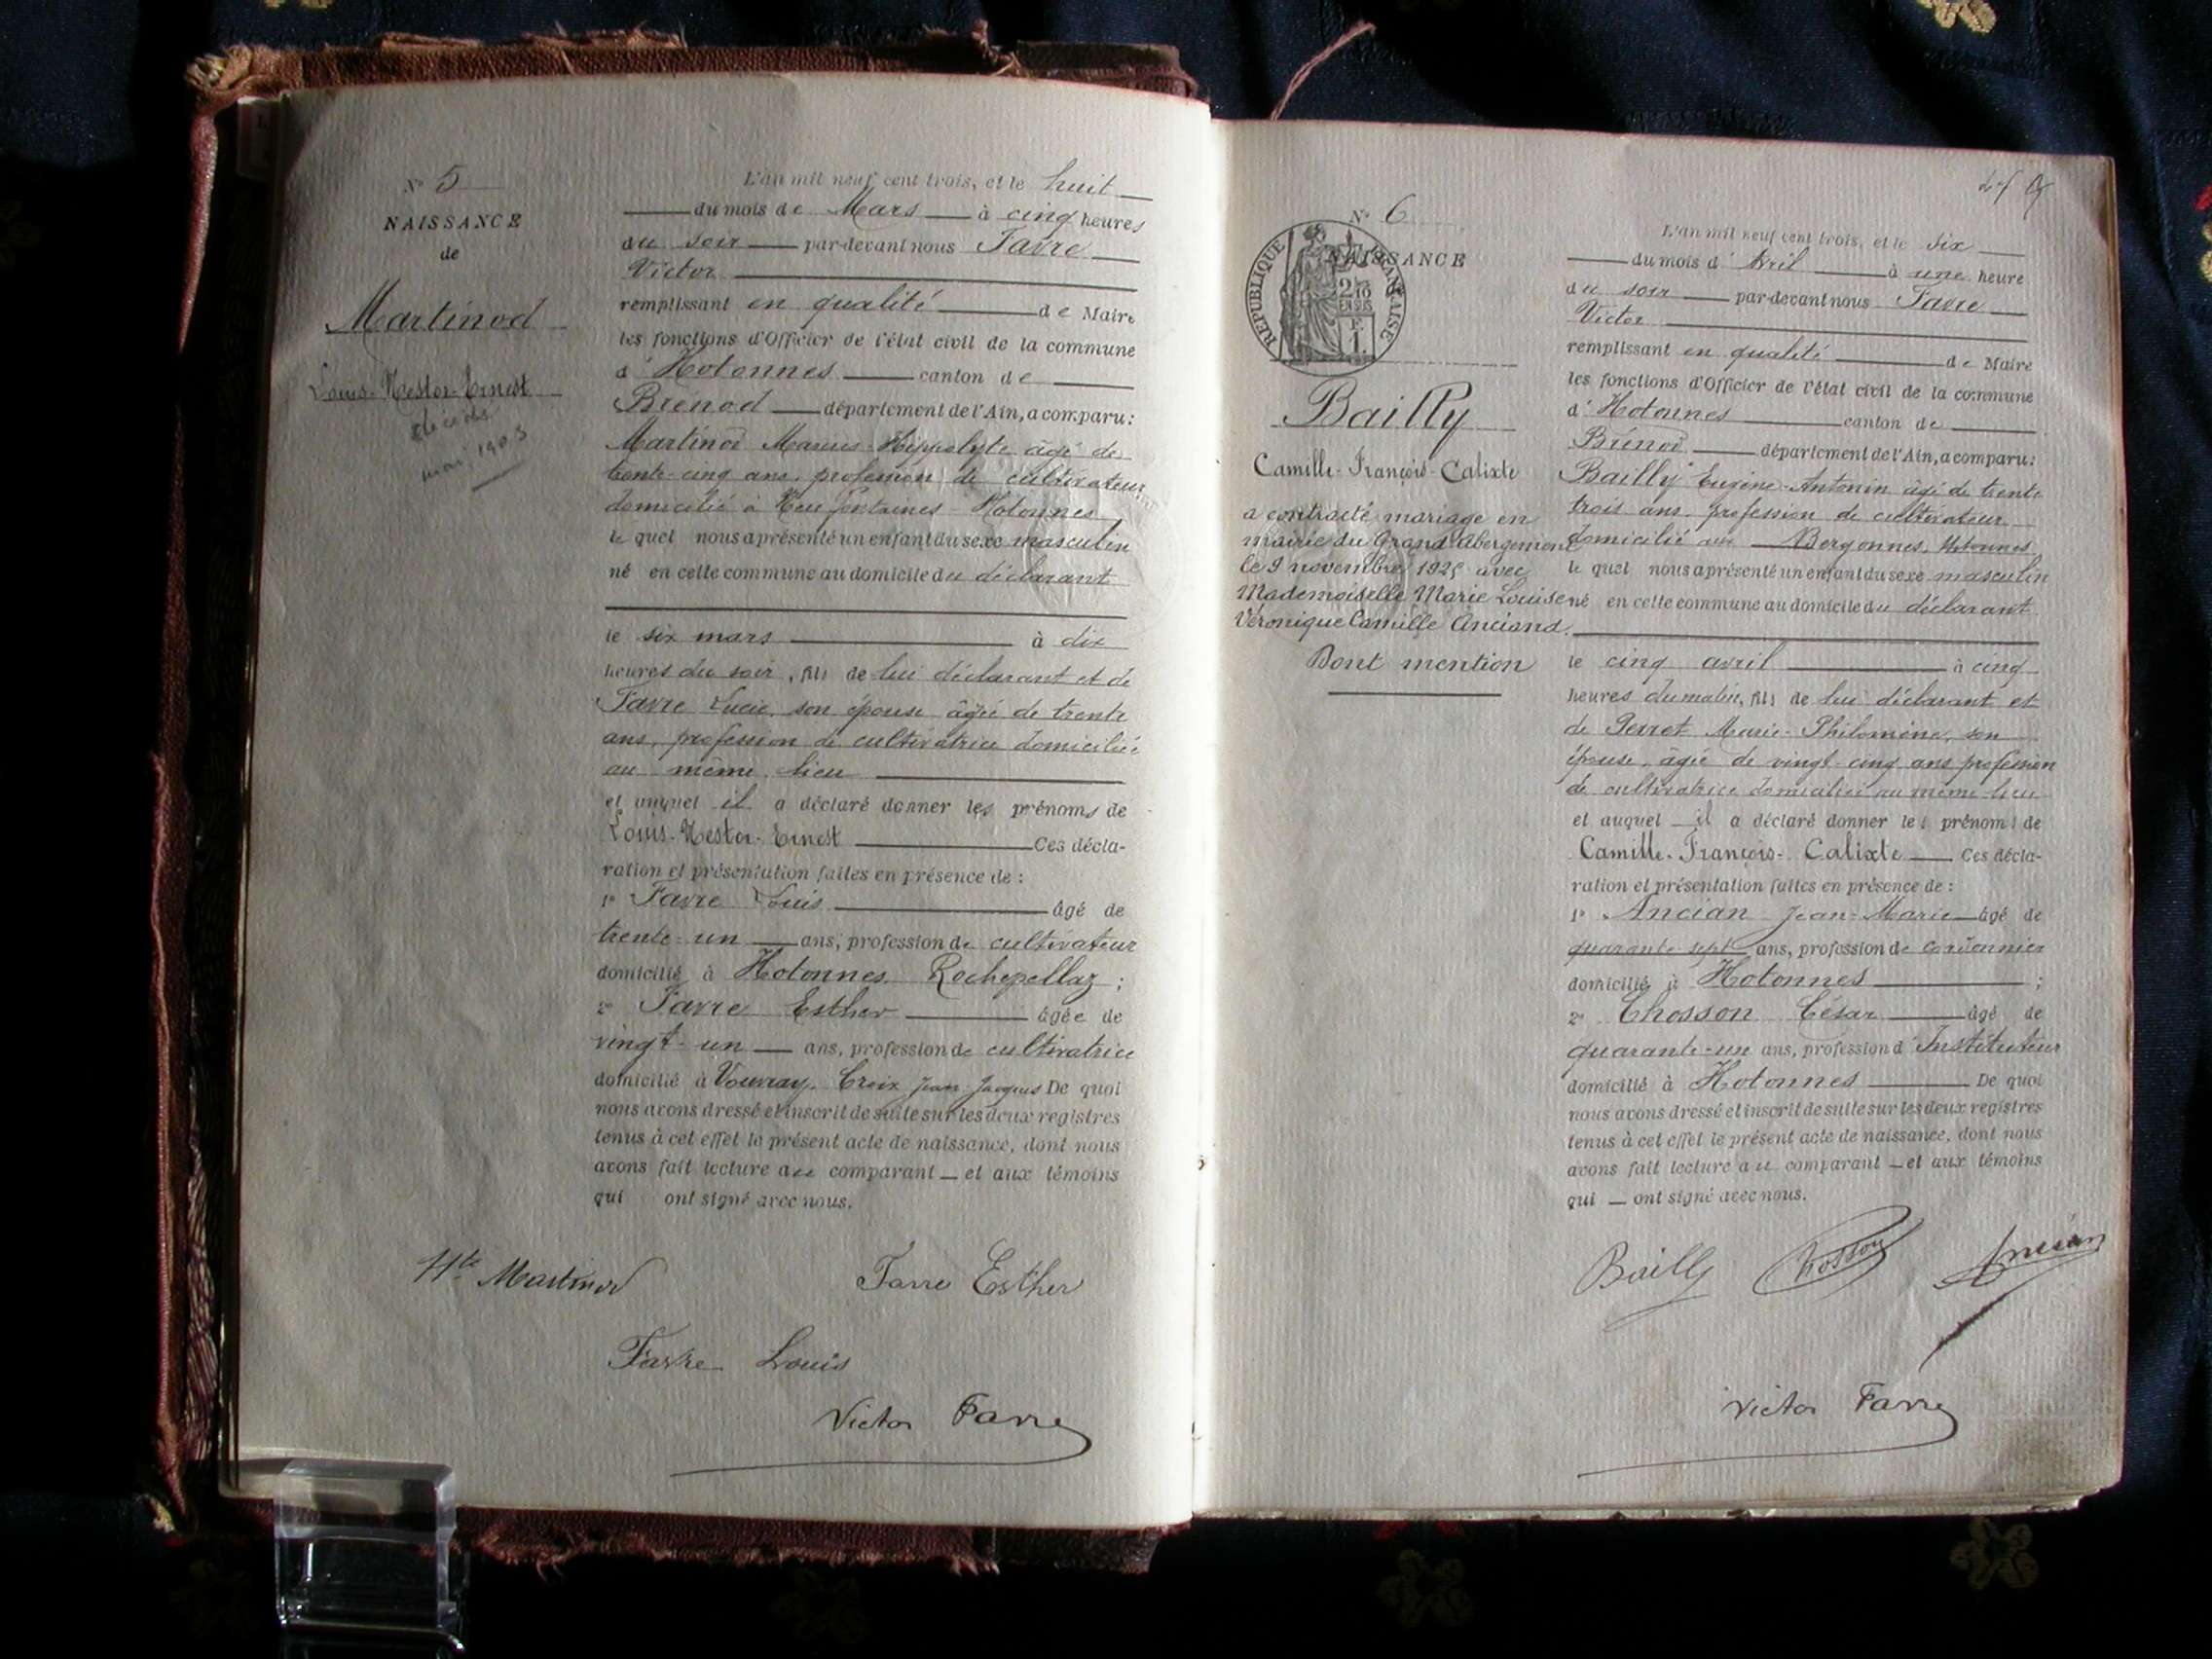 N° 5
NAISSANCE
de
Martinod
Louis-Nestor-Ernest
décédé
mai 1903
L'an mil neuf cent trois, et le huit
du mois de Mars à cinq heures
du soir par-devant nous Favre
Victor
remplissant en qualité de Maire
les fonctions d'Officier de l'état civil de la commune
d' Hotonnes canton de
Brénod département de l'Ain, a comparu:
Martinod Marius-Hippolyte âgé de
trente-cinq ans, profession de cultivateur
domicilié à Neu fontaines Hotonnes
le quel nous a présenté un enfant du sexe masculin
né en cette commune au domicile du déclarant
le six mars à dix
heures du soir, fils de lui déclarant et de
Favre Lucie, son épouse âgée de trente
ans, profession de cultivatrice domiciliée
au même lieu
et auquel il a déclaré donner les prénoms de
Louis-Nestor-Ernest Ces décla-
ration et présentation faites en présence de :
1° Favre Louis âgé de
trente-un ans, profession de cultivateur
domicilié à Hotonnes. Rochepellaz ;
2° Favre Esther âgée de
vingt-un ans, profession de cultivatrice
domicilié à Vouvray, Croix Jean-Jacques De quoi
nous avons dressé et inscrit de suite sur les deux registres
tenus à cet effet le présent acte de naissance, dont nous
avons fait lecture au comparant et aux témoins
qui ont signé avec nous.
Hte Martinod
Favre Esther
Favre Louis
Victor Favre
N° 6
NAISSANCE
REPUBLIQUE FRANÇAISE
2/10
EN SUS
F.
1.
Bailly
Camille-François-Calixte
a contracté mariage en
mairie du Grand Abergement
le 9 novembre 1925 avec
Mademoiselle Marie Louise
Véronique Camille Anciand.
Dont mention
L'an mil neuf cent trois, et le six
du mois d' Avril à une heure
du soir par-devant nous Favre
Victor
remplissant en qualité de Maire
les fonctions d'Officier de l'état civil de la commune
d' Hotonnes canton de
Brénod département de l'Ain, a comparu:
Bailly Eugène-Antonin âgé de trente
trois ans, profession de cultivateur
domicilié aux Bergonnes, Hotonnes
le quel nous a présenté un enfant du sexe masculin
né en cette commune au domicile du déclarant
le cinq avril à cinq
heures du matin, fils de lui déclarant et
de Perret Marie-Philomène, son
épouse, âgée de vingt-cinq ans profession
de cultivatrice domiciliée au même lieu
et auquel il a déclaré donner les prénoms de
Camille-François-Calixte Ces décla-
ration et présentation faites en présence de :
1° Ancian Jean-Marie âgé de
quarante-sept ans, profession de cordonnier
domicilié à Hotonnes ;
2° Chosson César âgé de
quarante-un ans, profession d'Instituteur
domicilié à Hotonnes De quoi
nous avons dressé et inscrit de suite sur les deux registres
tenus à cet effet le présent acte de naissance, dont nous
avons fait lecture au comparant et aux témoins
qui ont signé avec nous.
Bailly Chosson Ancian
Victor Favre